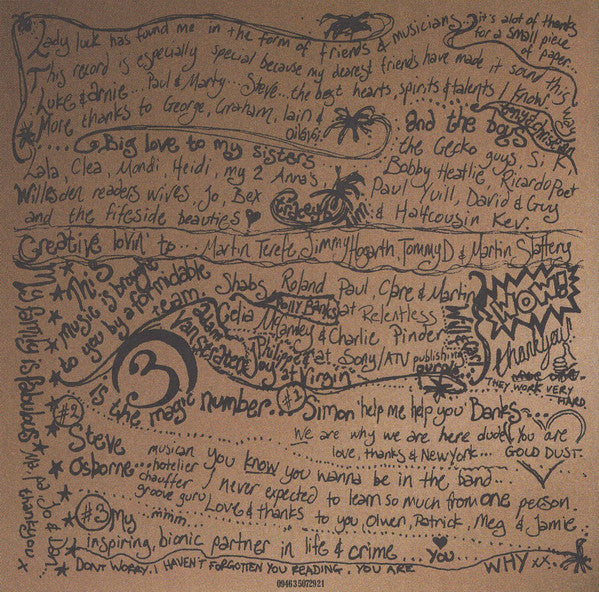 Lady luck has found me in the form of friends & musicians...
it's alot of thanks
for a small piece
of paper...
This record is especially special because my dearest friends have made it sound this way
Luke & Arnie... Paul & Marty... Steve... the best hearts, spirits & talents I know
More thanks to George, Graham, Iain &
Big love to my sisters
Lala, Clea, Mondi, Heidi, my 2 Anna's
Willesden readers wives, Jo, Bex
and the fireside beauties
and the boys
the Gecko guys, Si, K,
Bobby Heatlie, Ricardo Poet
Paul Yull, David & Guy
& Halfcousin Kev.
Creative lovin' to... Martin Terefe, Jimmy Hogarth, Tommy D & Martin Slattery
My family is fabulous
Jo & Dan...
thankyou x
Mi's
music is brought
to you by a formidable
team
Shabs, Roland Paul, Clare & Martin
Polly Banks at Relentless
Celia McCamley & Charlie Pinder
Philippe at Sony/ATV publishing
Joy at Virgin
WOW!
thankyou!
THEY WORK VERY
HARD
3
is the magic number...
#1 Simon 'help me help you' Banks...
We are why we are here dude! You are
love, thanks & New York...
GOLD DUST.
#2
Steve
Osborne...
musician
hotelier
chauffer
groove guru
mmm...
you know you wanna be in the band...
I never expected to learn so much from one person.
Love & thanks to you, Oliver, Patrick, Meg & Jamie
#3 My
inspiring, bionic partner in life & crime... You...
WHY xx.
DONT WORRY. I HAVEN'T FORGOTTEN YOU READING. YOU ARE
094635072921